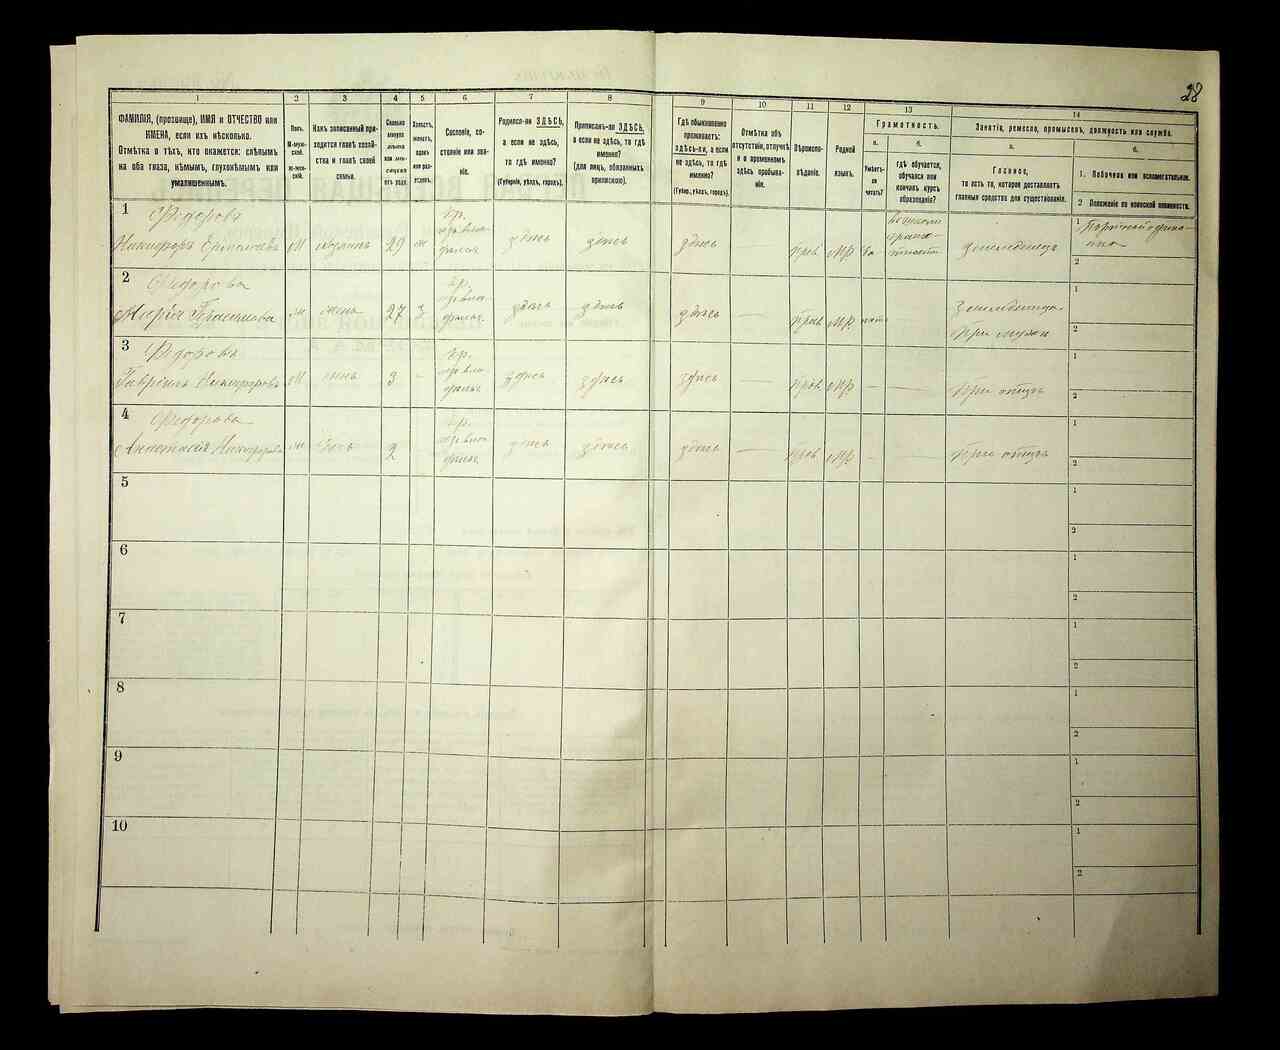 28
1
2
3
4
5
6
7
8
9
10
11
12
13
14
ФАМИЛІЯ, (прозвище), ИМЯ и ОТЧЕСТВО или
ИМЕНА, если ихъ нѣсколько.
Отмѣтка о тѣхъ, кто окажется: слѣпымъ
на оба глаза, нѣмымъ, глухонѣмымъ или
умалишеннымъ.
Полъ.
М-муж-
ской.
Ж-жен-
скій.
Какъ записанный при-
ходится главѣ хозяй-
ства и главѣ своей
семьи.
Сколько
минуло
лѣтъ
или мѣ-
сяцевъ
отъ роду.
Холостъ,
женатъ,
вдовъ
или раз-
веденъ.
Сословіе, со-
стояніе или зва-
ніе.
Родился-ли ЗДѢСЬ,
а если не здѣсь,
то гдѣ именно?
(Губернія, уѣздъ, городъ).
Приписанъ-ли ЗДѢСЬ,
а если не здѣсь, то гдѣ
именно?
(для лицъ, обязанныхъ
припискою).
Гдѣ обыкновенно
проживаетъ:
здѣсь-ли, а если
не здѣсь, то гдѣ
именно?
(Губер., уѣздъ, городъ).
Отмѣтка объ
отсутствіи, отлучкѣ
и о временномъ
здѣсь пребыва-
ніи.
Вѣроиспо-
вѣданіе.
Родной
языкъ.
Грамотность.
а.
б.
Умѣетъ-
ли
читать?
гдѣ обучается,
обучался или
кончилъ курсъ
образованія?
Занятіе, ремесло, промыселъ, должность или служба.
а.
б.
Главное,
то есть то, которое доставляетъ
главныя средства для существованія.
1. Побочное или вспомогательное.
2 Положеніе по воинской повинности.
1
Ѳедоровъ
Никифоръ Ермолаевъ
М
хозяинъ
29
ж
кр.
здѣсь
здѣсь
здѣсь
прав
да
земледѣлецъ
1
2
2
Ѳедорова
Марія
ж
жена
27
з
кр.
здѣсь
здѣсь
здѣсь
—
прав
нѣтъ
При мужѣ
1
2
3
Ѳедоровъ
Гавріилъ Никифоровъ
М
сынъ
3
-
кр.
здѣсь
здѣсь
здѣсь
—
прав
-
—
При отцѣ
1
2
4
Ѳедорова
Анастасія Никифорова
ж
дочь
2
-
кр.
здѣсь
здѣсь
здѣсь
—
прав
-
—
При отцѣ
1
2
5
1
2
6
1
2
7
1
2
8
1
2
9
1
2
10
1
2